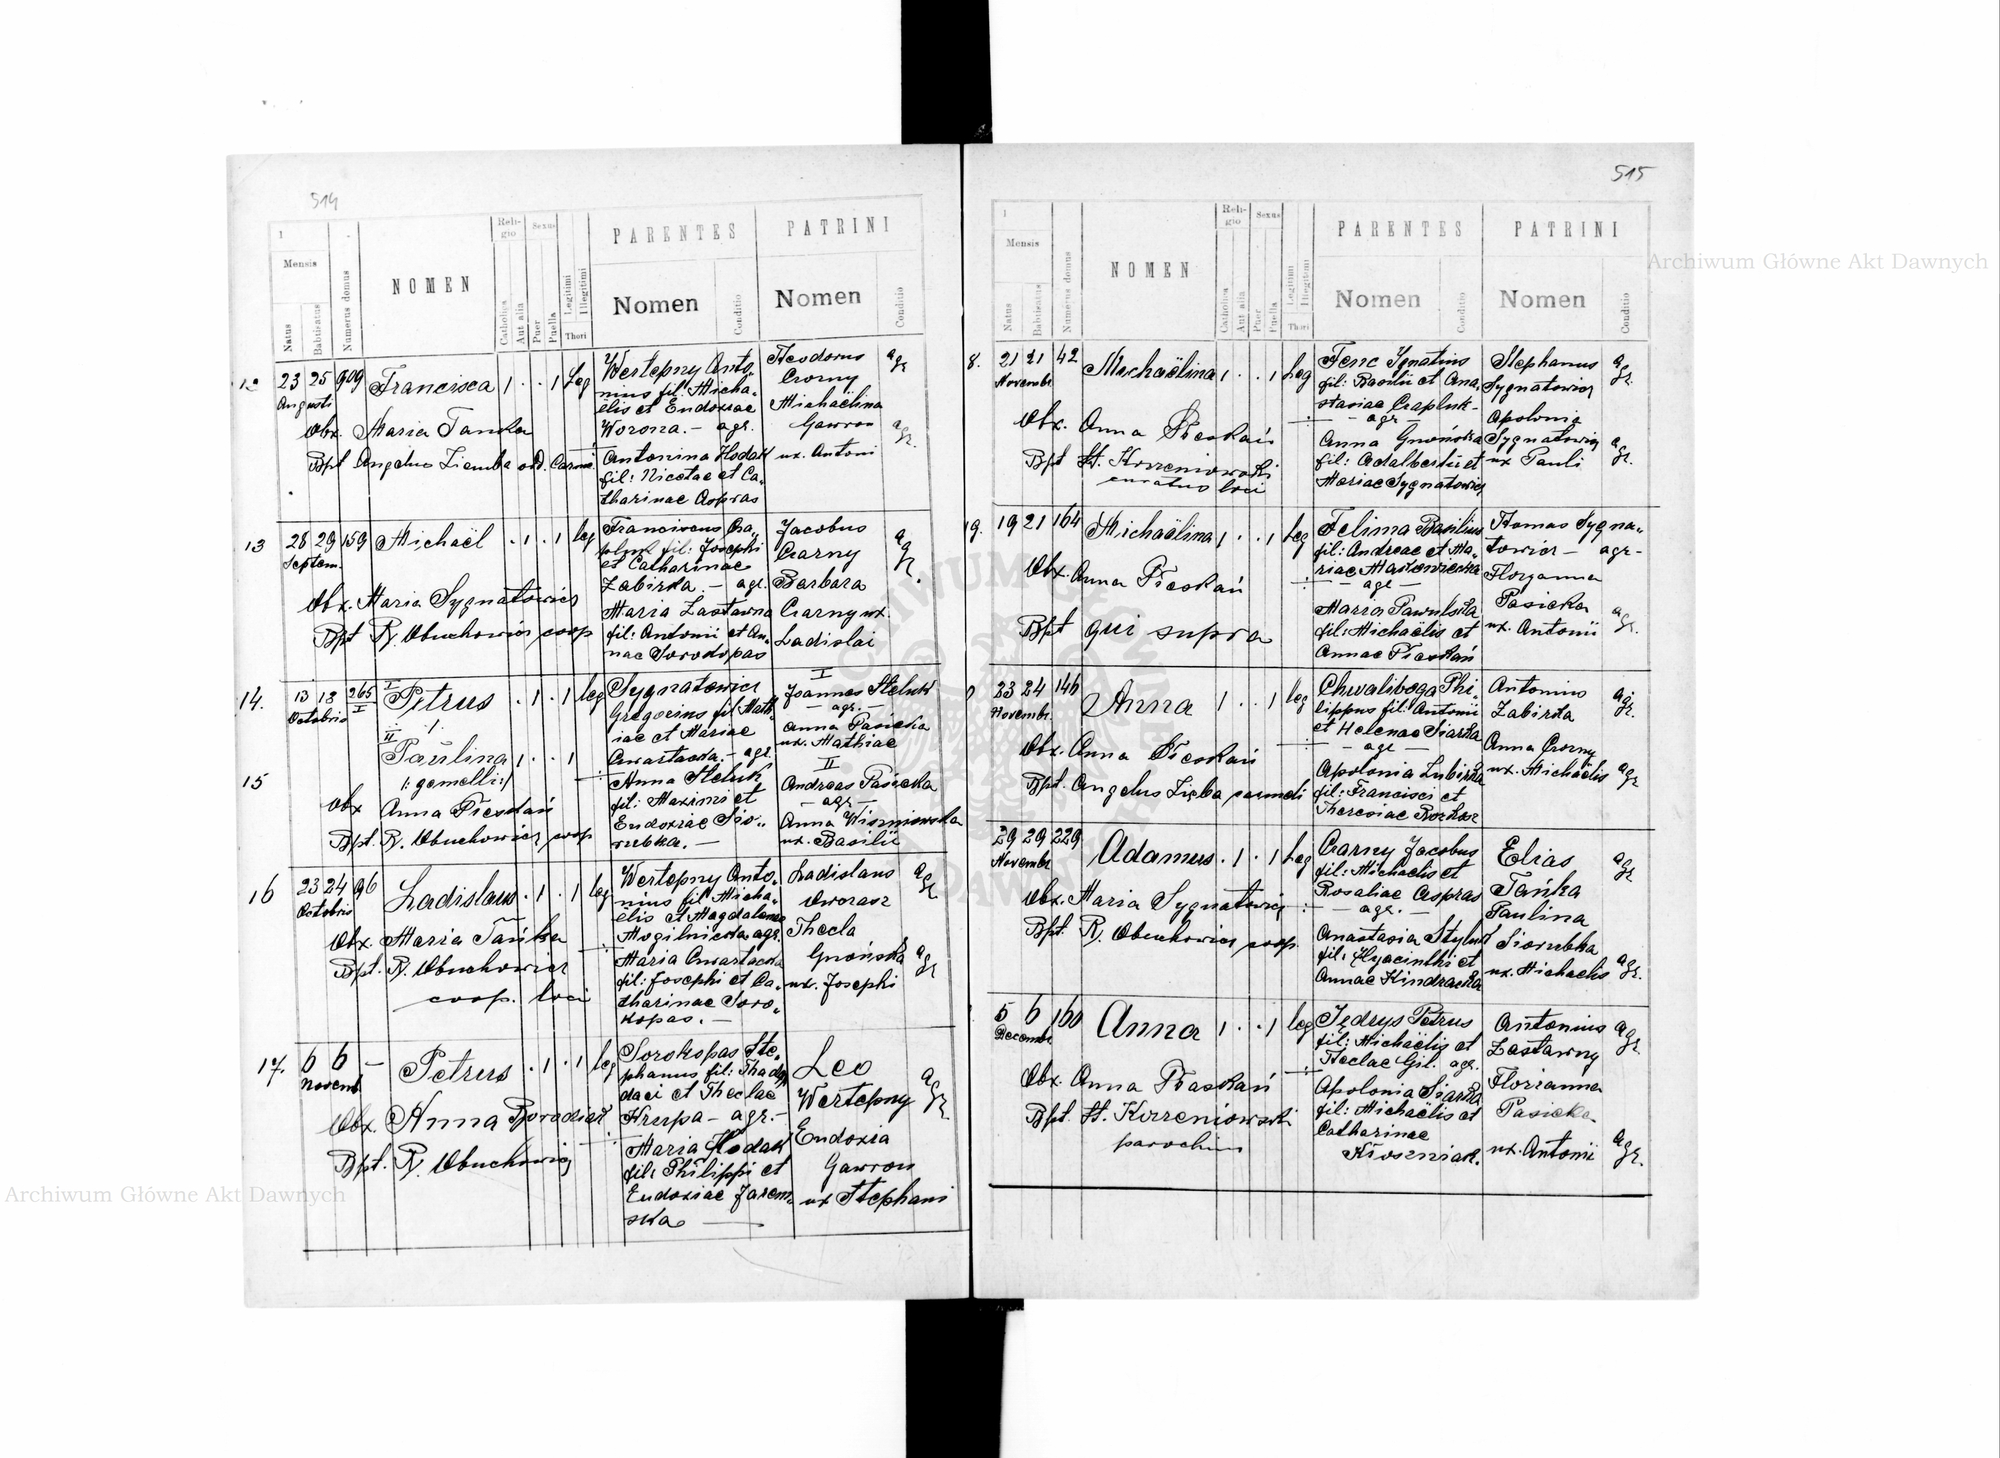 514
1
Mensis
Natus
Babtisatus
Numerus domus
NOMEN
Reli-
gio
Catholica
Aut alia
Sexus
Puer
Puella
Legitimi
Illegitimi
Thori
PARENTES
Nomen
Conditio
PATRINI
Nomen
Conditio
12 23 25 909 Francisca 1 . . 1 Leg
Augusti
Obx. Maria Tanka
Bpt Angelus Ziemba ord. Carmel
Wertepny Anto-
nius fil: Micha-
ëlis et Eudoxiae
Worona. - agr.
Antonina Hodak
fil: Nicetae et Ca-
tharinae Aspras
Theodorus agr
Czorny
Michaëlina
Gawron agr.
ux. Antoni
13 28 29 159 Michaël . 1 . 1 leg
Septem.
Obx. Maria Sygnatowicz
Bpt R. Obuchowicz coop
Franciscus Cza-
pluk fil: Josephi
et Catharinae
Zabirka. - agr.
Maria Zastawna
fil: Antonii et An-
nae Sorokopas
Jacobus agr.
Czarny
Barbara
Czarny ux.
Ladislai
14. 13 13 265 I Petrus . 1 . 1 leg
Octobris I
II
Paulina 1 . . 1
/: gemelli :/
15
Obx Anna Pieskań
Bpt. R. Obuchowicz coop
Sygnatowicz
Gregorius fil Math-
iae et Mariae
Cwartacka. - agr.
Anna Steluk
fil: Maximi et
Eudoxiae Sio-
rubka. -
I
Joannes Steluk
- agr. -
Anna Pasieka
ux. Mathiae
II
Andreas Pasieka
- agr -
Anna Wiszniowska
ux. Basilii
16 23 24 96 Ladislaus . 1 . 1 leg
Octobris
Obx. Maria Tańka
Bpt. R. Obuchowicz
coop. loci
Wertepny Anto-
nius fil Micha-
ëlis et Magdalenae
Mogilnicka agr.
Maria Cwartacka
fil: Josephi et Ca-
tharinae Soro-
kopas. -
Ladislaus agr
Dworasz
Thecla
Gnońska agr
ux. Josephi
17. 6 6 - Petrus . 1 . 1 leg
Novemb
Obx. Anna Boradiak
Bpt. R. Obuchowicz
Sorokopas Ste-
phanus fil: Thad-
daei et Theclae
Hrepa - agr. -
Maria Hodak
fil: Philippi et
Eudoxiae Jarem-
ska -
Leo agr.
Wertepny
Eudoxia
Gawron
ux Stephani
515
1
Mensis
Natus
Babtisatus
Numerus domus
NOMEN
Reli-
gio
Catholica
Aut alia
Sexus
Puer
Puella
Legitimi
Illegitimi
Thori
PARENTES
Nomen
Conditio
PATRINI
Nomen
Conditio
8. 21 21 42 Michaëlina 1 . . 1 Leg
Novembr
Obx. Anna Pieskań
Bpt St. Korzeniowski
curatus loci
Fenc Ignatius
fil: Basilii et Ana-
stasiae Czapluk -
- agr
Anna Gnońska
fil: Adalberti et
Mariae Sygnatowicz
Stephanus agr.
Sygnatowicz
Apolonia
Sygnatowicz agr.
ux Pauli
19. 19 21 164 Michaëlina 1 . . 1 Leg
Obx. Anna Pieskań
Bpt qui supra
Felima Basilius
fil: Andreae et Ma-
riae Maslowiecka
- agr -
Maria Pawulska
fil: Michaëlis et
Annae Pieskań
Thomas Sygna-
towicz - agr -
Floryanna
Pasieka agr.
ux. Antonii
23 24 146 Anna 1 . . 1 leg
Novembr.
Obx. Anna Pieskań
Bpt. Angelus Zięba carmeli
Chwaliboga Phi-
lippus fil: Antonii
et Helenae Siarka
- agr -
Apolonia Zubirka
fil: Francisci et
Theresiae Rozkosz
Antonius agr.
Zabirka
Anna Czorny
ux. Michaëlis agr
29 29 229 Adamus . 1 . 1 Leg
Novembr
Obx. Maria Sygnatowicz
Bpt. R. Obuchowicz coop.
Czarny Jacobus
fil: Michaelis et
Rosaliae Aspras
agr. -
Anastasia Styluk
fil: Hyacinthi et
Annae Kindracka
Elias agr
Tańka
Paulina
Siorubka
ux. Michaelis agr.
5 6 160 Anna 1 . . 1 leg
Decembr
Obx. Anna Piaskań
Bpt. St. Korzeniowski
parochus
Jędrys Petrus
fil: Michaëlis et
Theclae Gil. agr.
Apolonia Siarka
fil: Michaëlis et
Catharinae
Kioszniak.
Antonius agr.
Zastawny
Florianna
Pasieka
ux. Antonii agr.
Archiwum Główne Akt Dawnych
Archiwum Główne Akt Dawnych